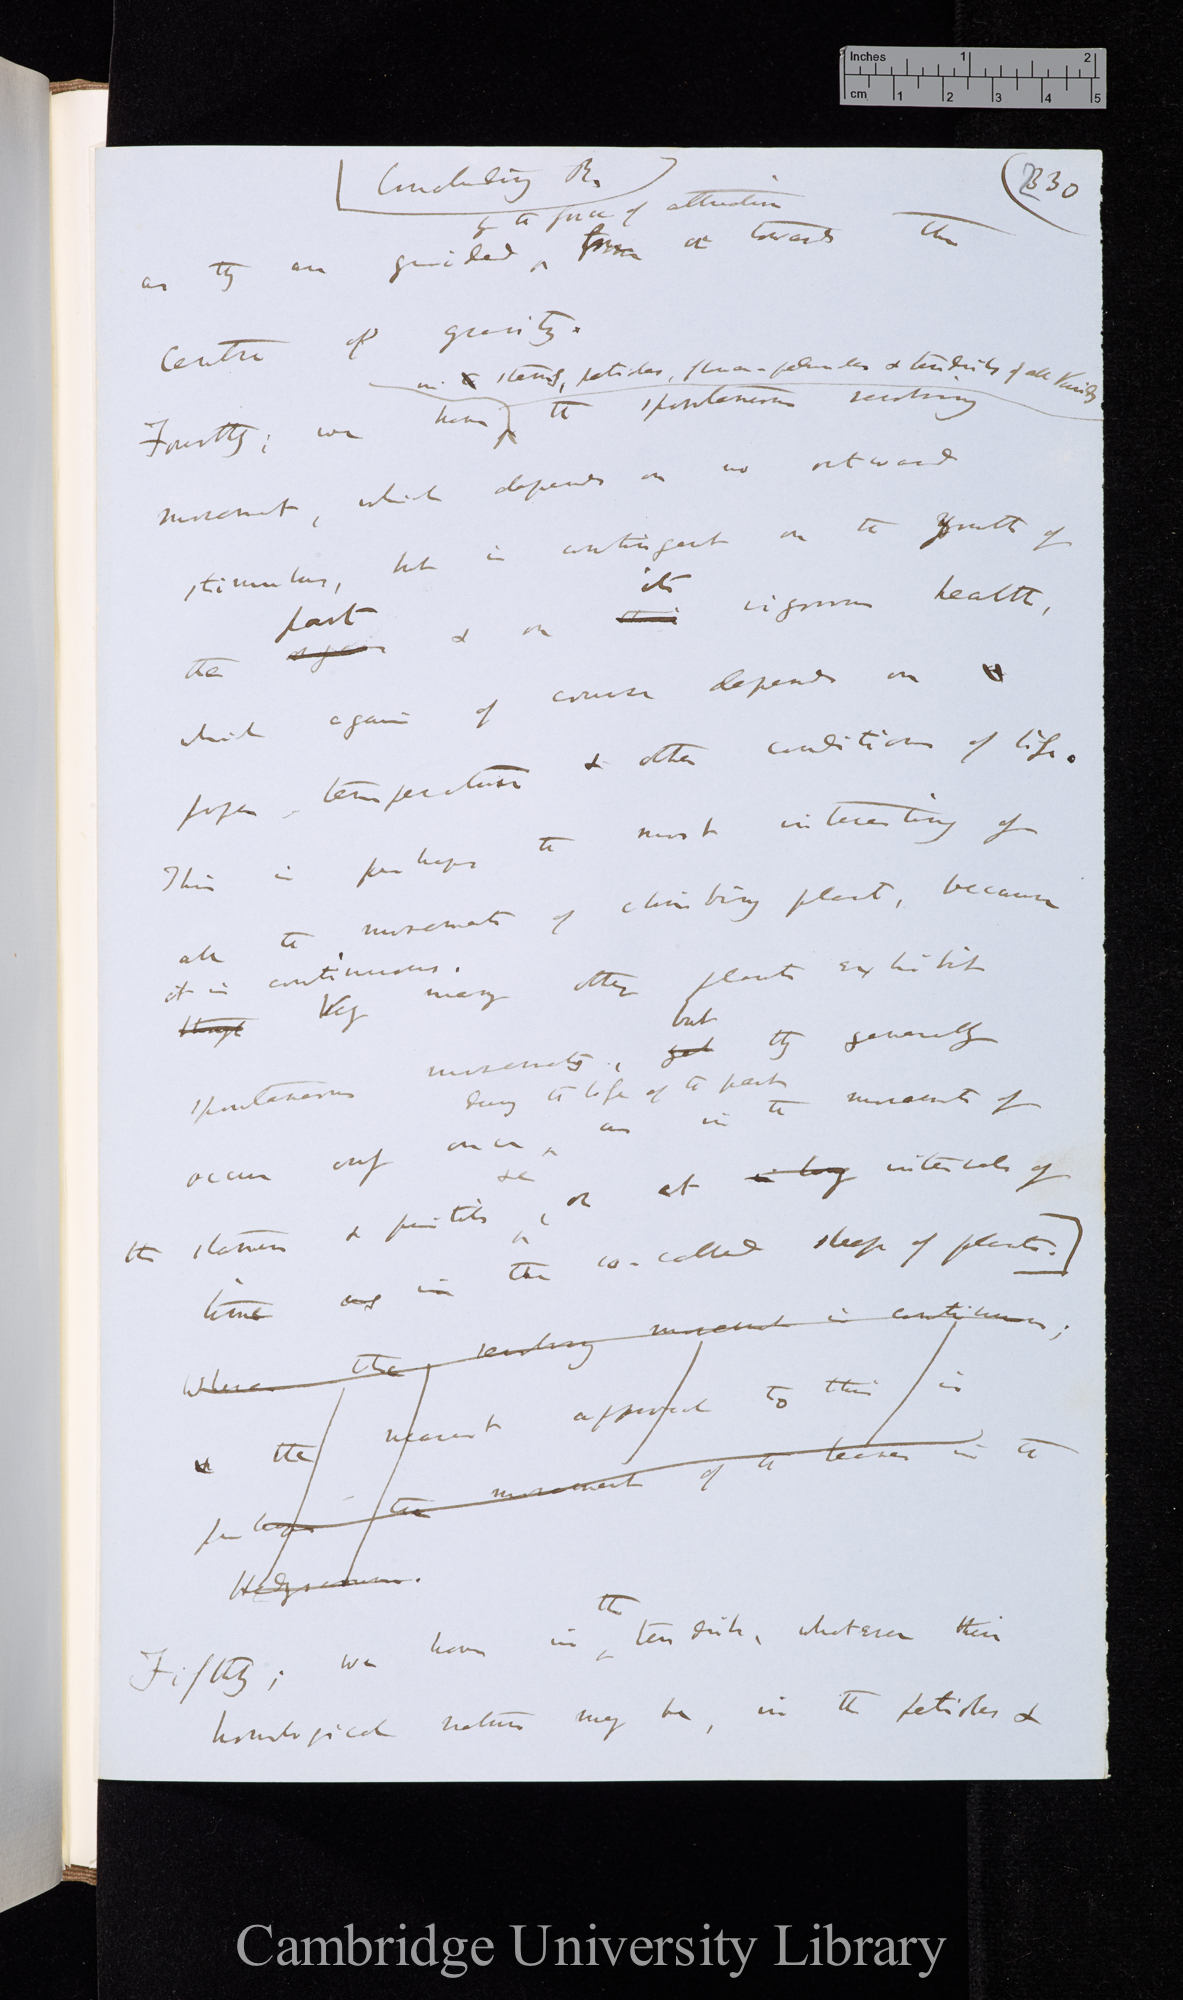 Inches 1 2
cm 1 2 3 4 5
Concluding R.
330
by the force of attraction
as they are guided from or towards the
centre of gravity.
in stems, petioles, flower-peduncles & tendrils of all kinds
Fourthly; we have the spontaneous revolving
movement, which depends on no outward
stimulus, but is contingent on the youth of
part its
the organ & on this vigorous health,
which again of course depends on
proper temperature & other conditions of life.
This is perhaps the most interesting of
all the movements of climbing plant, because
it is continuous.
though Very many other plants exhibit
but
spontaneous movements, yet they generally
during the life of the part
occur only once, as in the movements of
&c
the stamens & pistils, or at long intervals of
time as in the so-called sleep of plants.
Where the revolving movement is continuous;
& the nearest approach to this is
perhaps the movement of the leaves in the
Hedysarum.
the
Fifthly; we have in tendrils, whatever their
homological nature may be, in the petioles &
Cambridge University Library